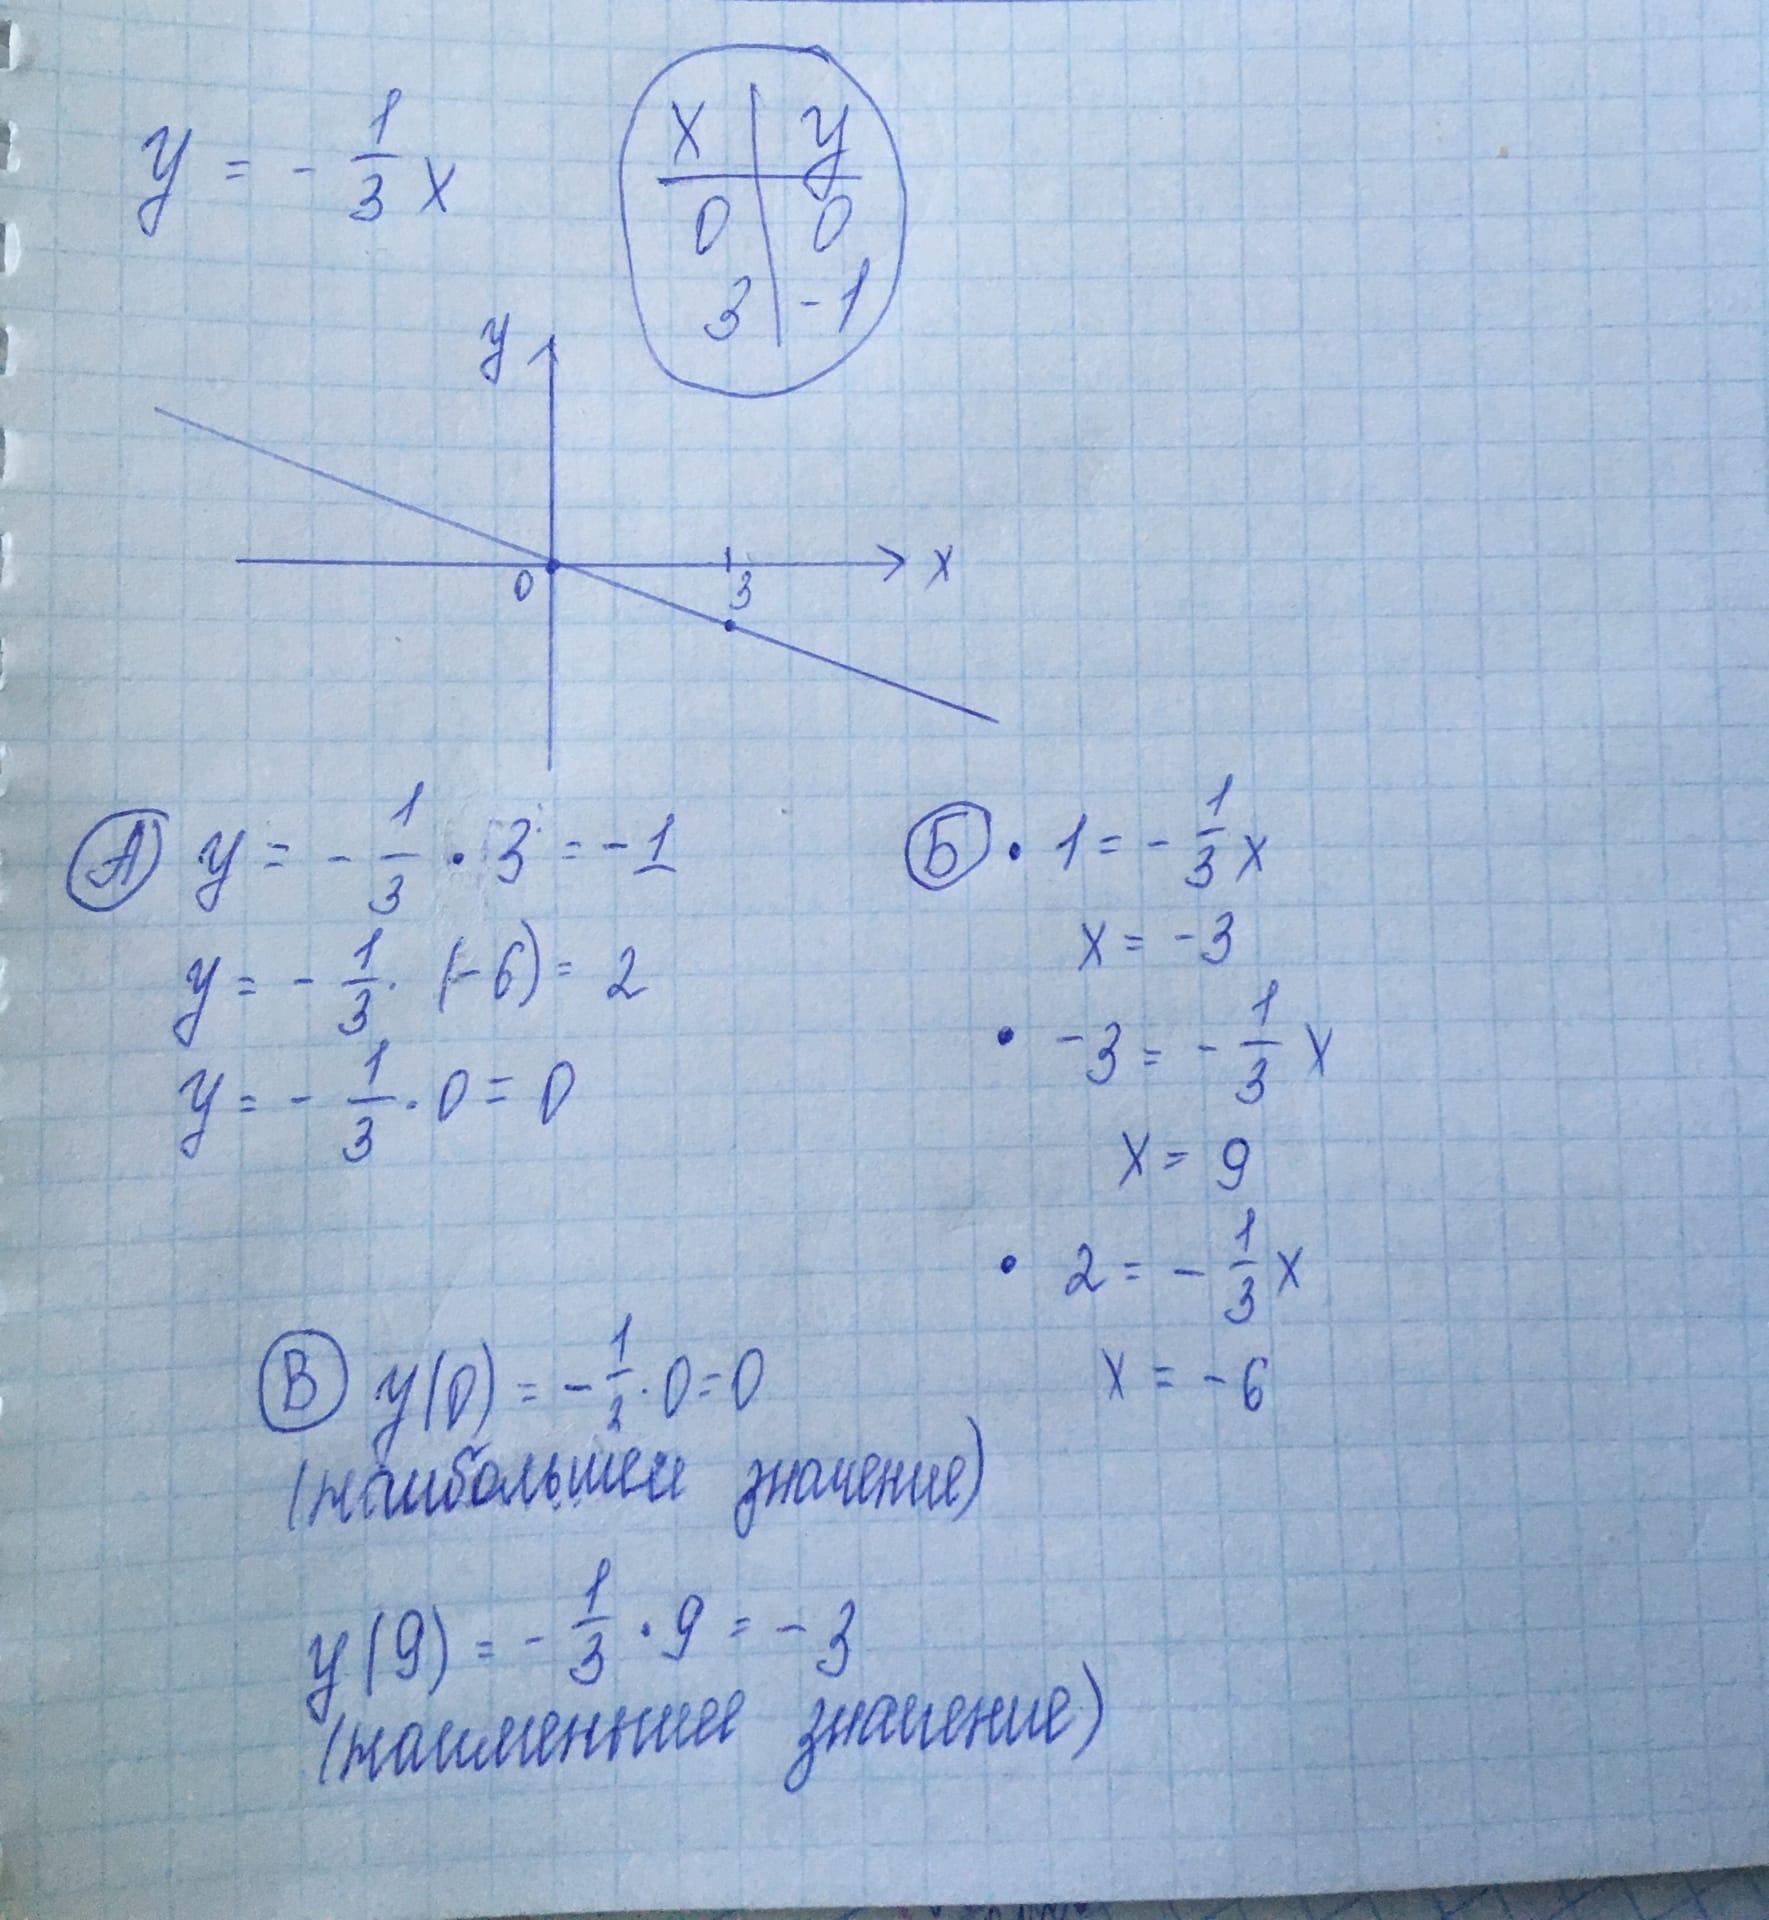 y = - 1/3 x
x | y
0 | 0
3 | -1
y
0 3 x
А y = - 1/3 · 3 = -1
y = - 1/3 · (-6) = 2
y = - 1/3 · 0 = 0
Б · 1 = - 1/3 x
x = -3
· -3 = - 1/3 x
x = 9
· 2 = - 1/3 x
x = -6
В y(0) = - 1/3 · 0 = 0
(наибольшее значение)
y(9) = - 1/3 · 9 = -3
(наименьшее значение)